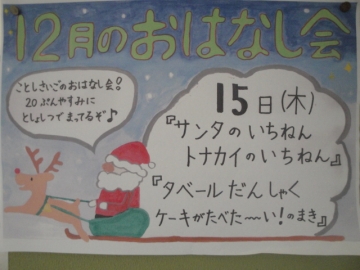 12月のおはなし会
ことしさいごのおはなし会！
20ぷんやすみに
としょしつでまってるぞ♪
15日(木)
『サンタのいちねん
トナカイのいちねん』
『タベールだんしゃく
ケーキがたべた〜い！のまき』